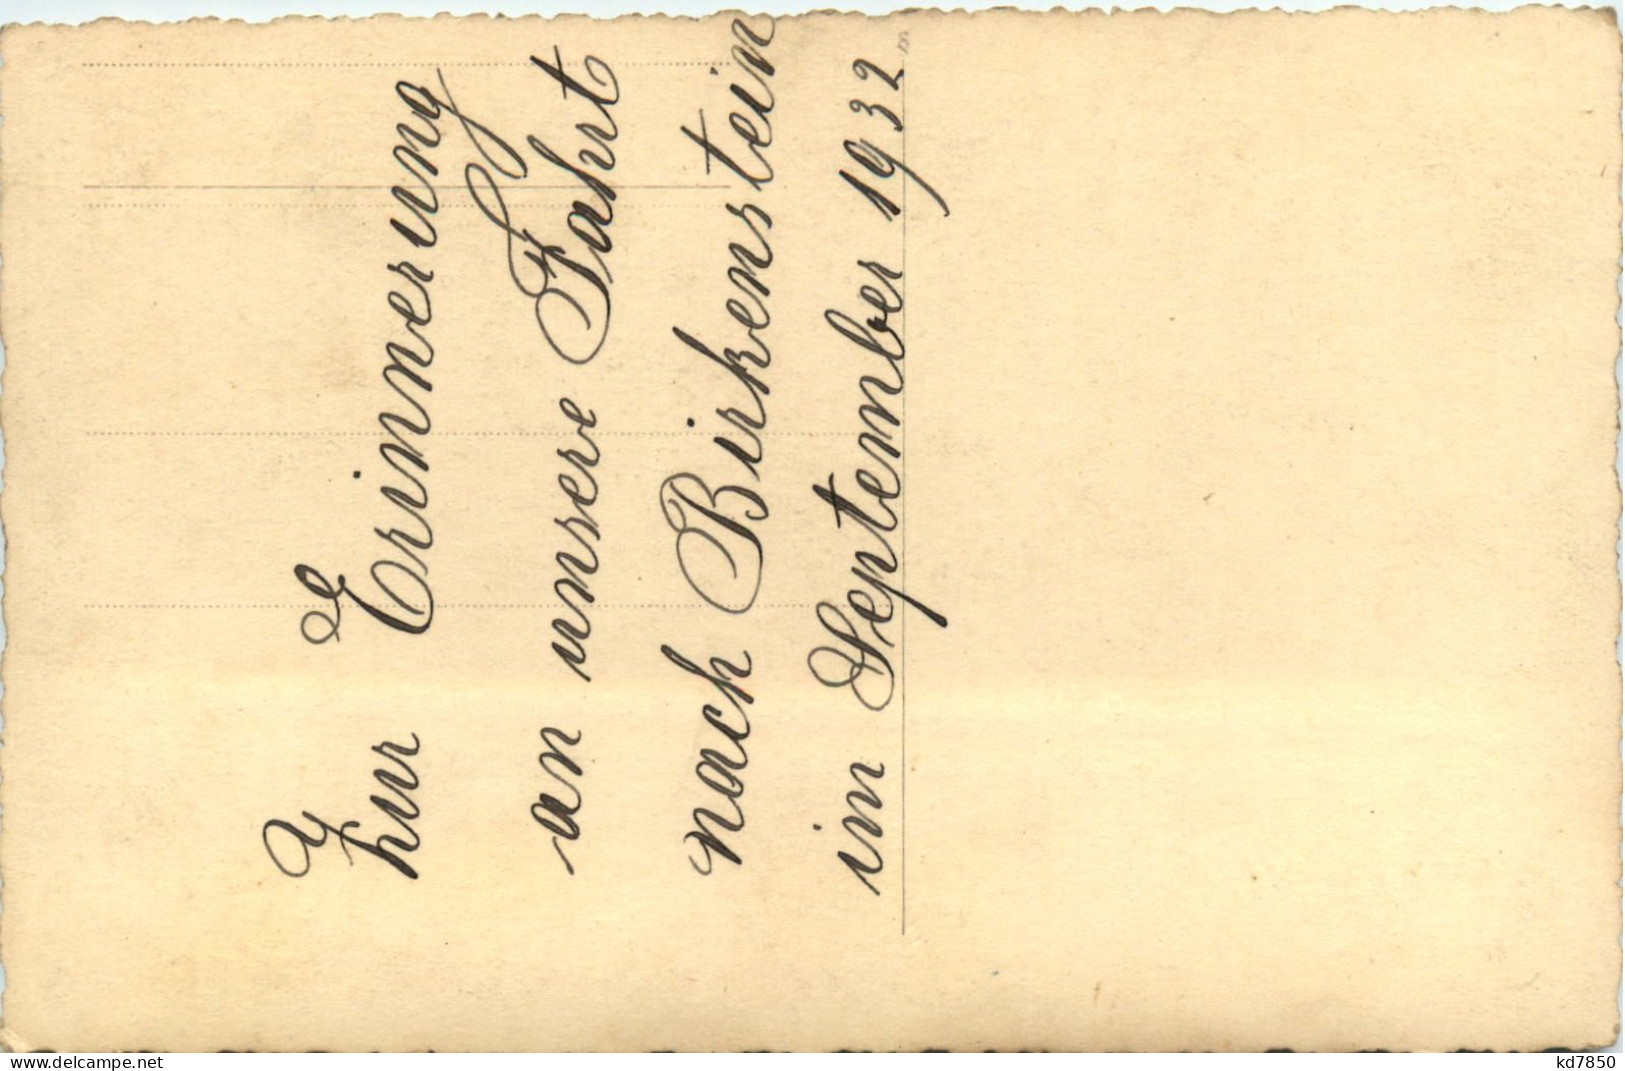 Zur Erinnerung
an unsere Fahrt
nach Birkenstein
im September 1932
www.delcampe.net
kd7850